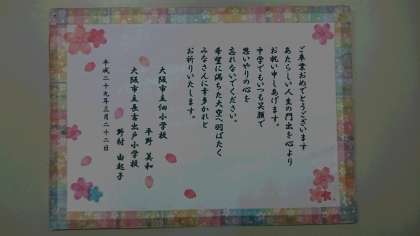 ご卒業おめでとうございます
あたらしい人生の門出を心より
お祝い申しあげます。
中学でもいつも笑顔で
思いやりの心を
忘れないでください。
希望に満ちた大空へ羽ばたく
みなさんに幸多かれと
お祈りいたします。
大阪市立佃小学校
平野 美和
大阪市立長吉出戸小学校
野村 由起子
平成二十九年三月二十二日